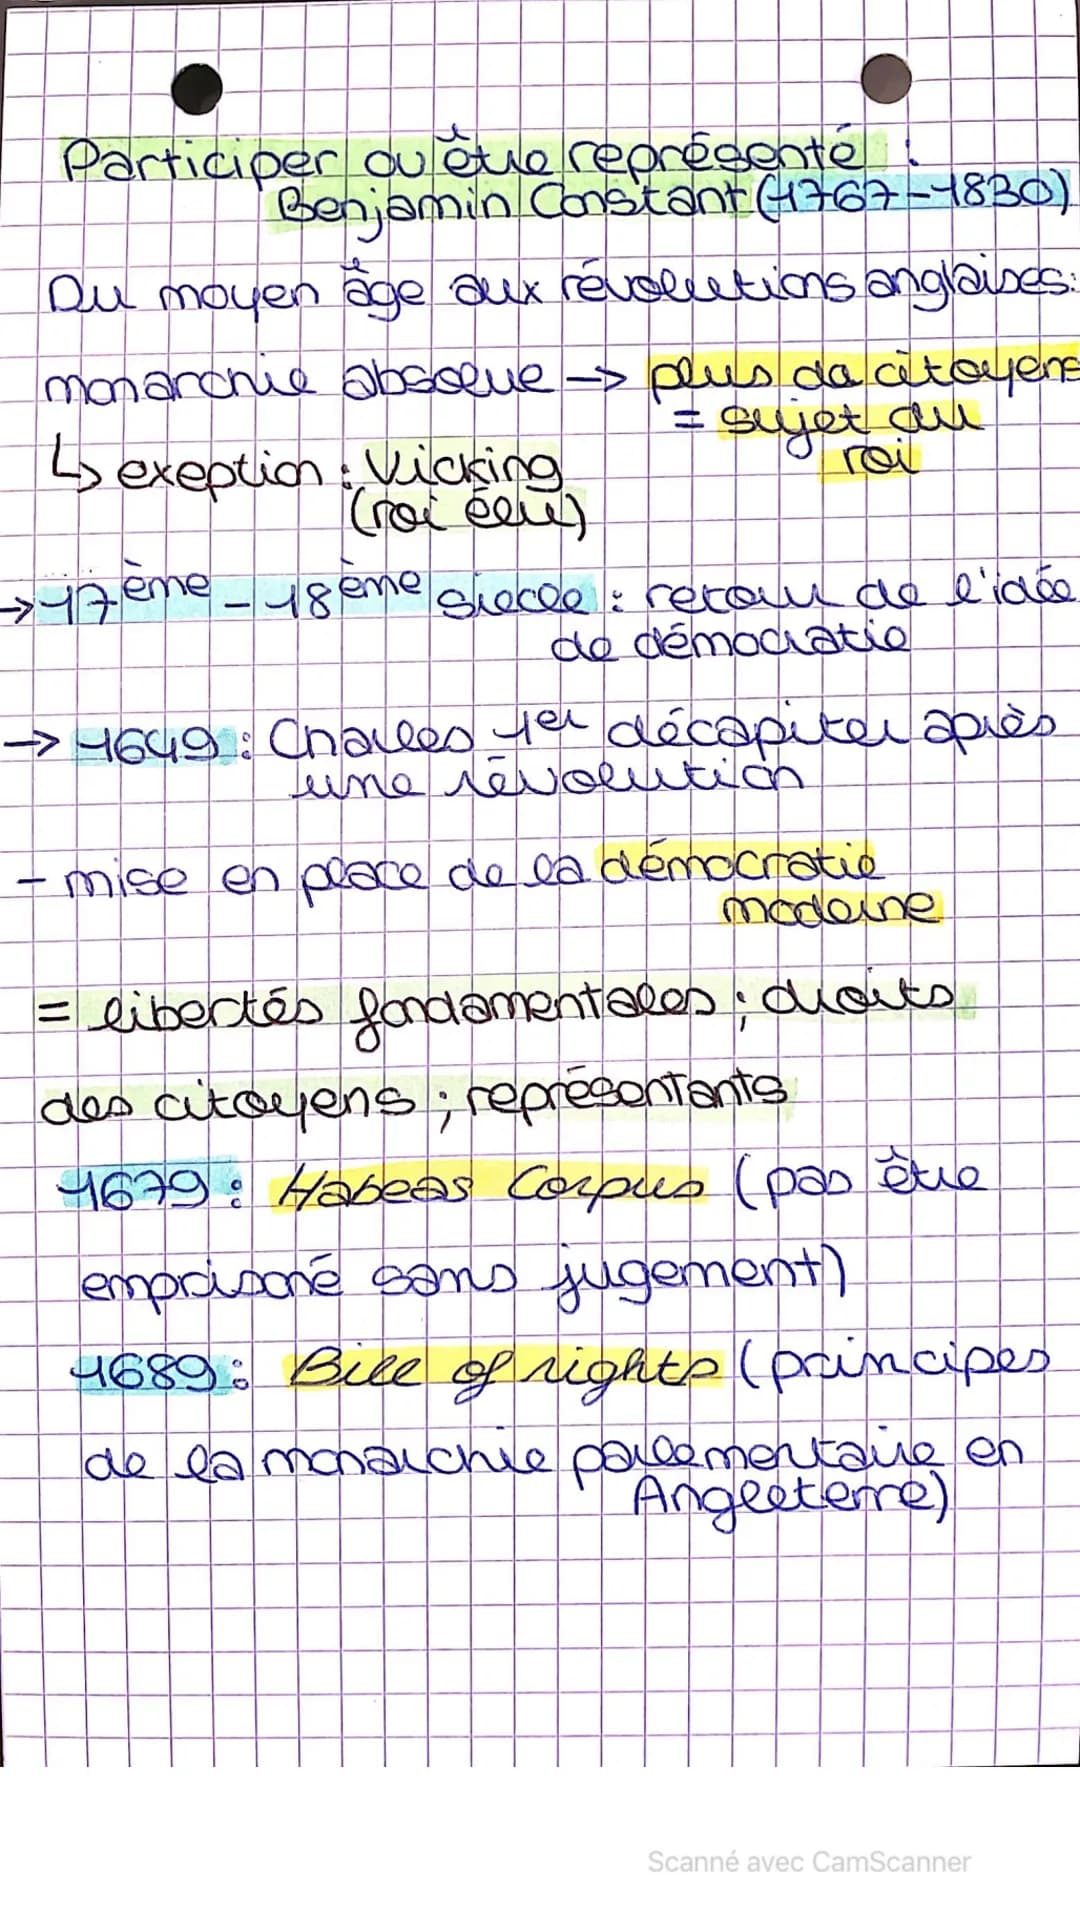 Participer ou être représenté :
Benjamin Constant (1767-1830)
Du moyen âge aux révolutions anglaises:
monarchie absolue -> plus de citoyens
= sujet du
roi
↳ exeption : Vicking
(roi élu)
-> 17ème - 18ème siecle : retour de l'idée
de démocratie
-> 1649 : Charles 1er décapiter après
une révolution
- mise en place de la démocratie
moderne
= libertés fondamentales ; droits
des citoyens ; représentants
1679 : Habeas Corpus (pas être
emprisoné sans jugement)
1689 : Bill of rights (principes
de la monarchie parlementaire en
Angleterre)
Scanné avec CamScanner